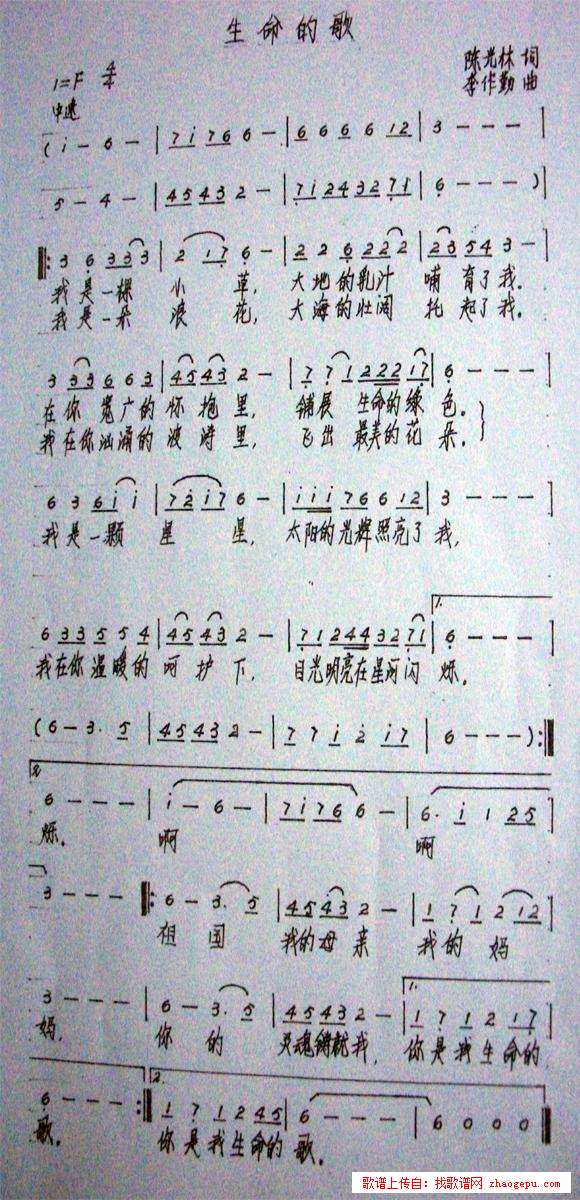 生命的歌
陈光林 词
1=F 4/4
李作勤 曲
中速
(i - 6 - | 7 i 7 6 6 - | 6 6 6 6 1 2 | 3 - - - |
5 - 4 - | 4 5 4 3 2 - | 7 1 2 4 3 2 7 1 | 6 - - - )
3 6 3 3 3 3 | 2 1 7 6 - | 2 2 6 2 2 2 2 | 2 3 5 4 3 - |
我是一棵 小 草, 大地的乳汁 哺育了我。
我是一朵 浪 花, 大海的壮阔 托起了我。
3 3 3 6 6 3 | 4 5 4 3 2 - | 7 7 1 2 2 2 2 1 7 | 6 - - - |
在你宽广的怀抱里, 铺展 生命的绿 色。
我在你汹涌的波涛里, 飞出 最美的花 朵。
6 3 6 i i | 7 2 i 7 6 - | i i i 7 6 6 1 2 | 3 - - - |
我是一颗 星 星, 太阳的光辉照亮了我,
1.
6 3 3 5 5 4 | 4 5 4 3 2 - | 7 1 2 4 4 3 2 7 1 | 6 - - - |
我在你温暖的呵护下, 目光明亮在星河闪 烁。
(6 - 3. 5 | 4 5 4 3 2 - | 7 7 i 2 i 7 | 6 - - - ) :||
2.
6 - - - | i - 6 - | 7 i 7 6 6 - | 6. i 1 2 5 |
烁。 啊 啊
3 - - - ||: 6 - 3. 5 | 4 5 4 3 2 - | 1 7 1 2 1 2 |
祖 国 我的母亲 我的 妈
1.
3 - - - | 6 - 3. 5 | 4 5 4 3 2 - | 1 7 1 2 1 7 |
妈, 你 的 灵魂铸就我, 你是我生命的
2.
6 - - - :|| 1 7 1 2 4 5 | 6 - - - | 6 0 0 0 ||
歌。 你是我生命的 歌。
歌谱上传自: 找歌谱网 zhaogepu.com